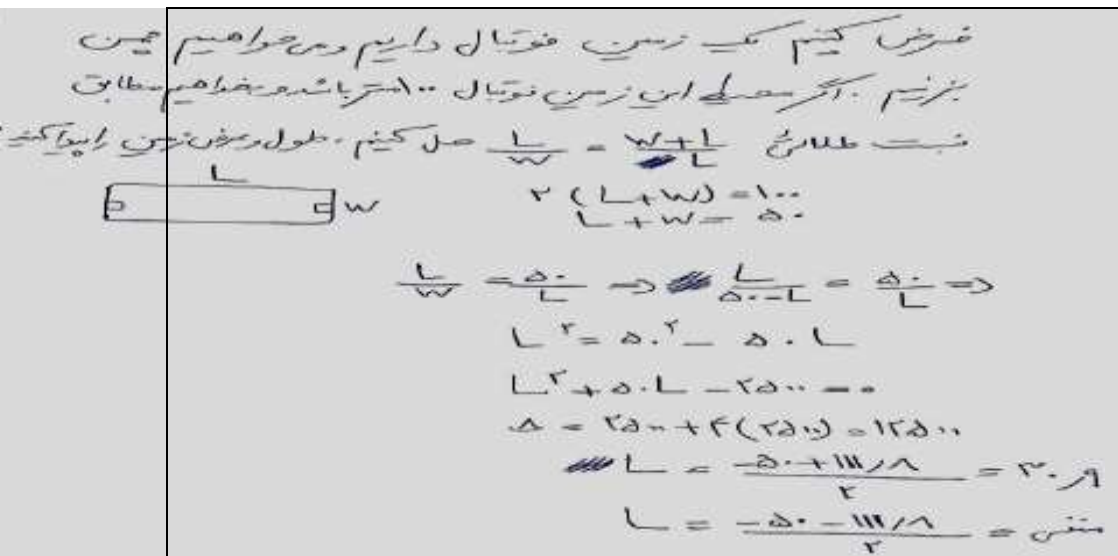 فرض کنیم یک زمین فوتبال داریم و می خواهیم چمن
بزنیم . اگر محیط این زمین فوتبال ۱۰۰ متر باشد و بخواهیم مطابق
نسبت طلائی L/W = W+L/L حل کنیم . طول و عرض زمین را پیدا کنید
L
W
۲ (L+W) = ۱۰۰
L + W = ۵۰
L/W = ۵۰/L => L/۵۰-L = ۵۰/L =>
L² = ۵۰² - ۵۰L
L² + ۵۰L - ۲۵۰۰ = ۰
Δ = ۲۵۰۰ + ۴(۲۵۰۰) = ۱۲۵۰۰
L = -۵۰+۱۱۱/۸ / ۲ = ۳۰/۹
L = -۵۰-۱۱۱/۸ / ۲ = منفی